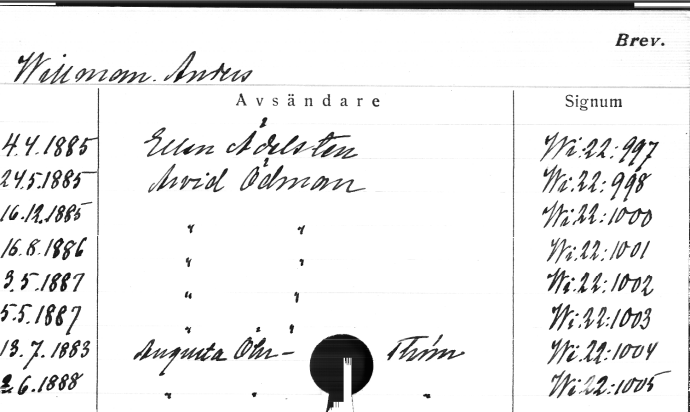 Brev.
Willman. Anders
Avsändare Signum
4.4.1885 Ellen Ådelsten Wi:22:997
24.5.1885 Arvid Ödman Wi:22:998
16.12.1885 " " Wi:22:1000
16.8.1886 " " Wi:22:1001
3.5.1887 " " Wi:22:1002
5.5.1887 " " Wi:22:1003
13.7.1883 Augusta Öhr- Thöm Wi:22:1004
2.6.1888 " " " Wi:22:1005